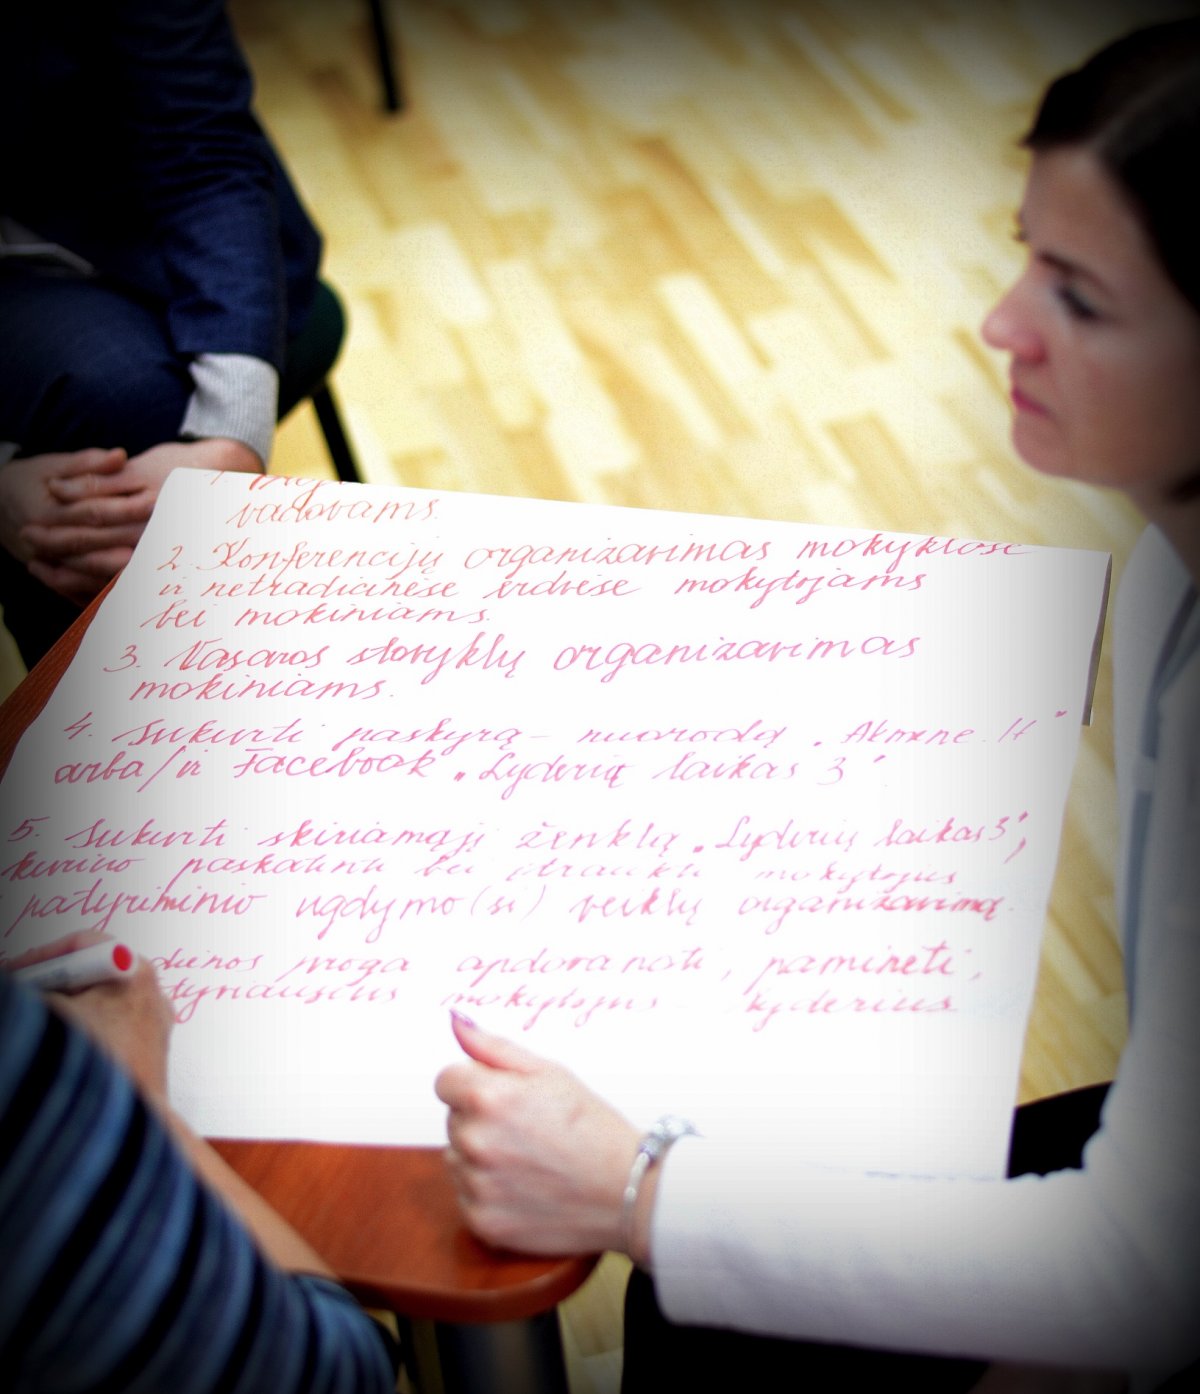 1.
vadovams.
2. Konferencijų organizavimas mokyklose
ir netradicinėse erdvėse mokytojams
bei mokiniams.
3. Vasaros stovyklų organizavimas
mokiniams.
4. Sukurti paskyrą - nuorodą „Akmenė.lt"
arba/ir Facebook „Lyderių laikas 3".
5. Sukurti skiriamąjį ženklą „Lyderių laikas 3",
kurio paskatintu bei įtrauktu mokytojus
patyriminio ugdymo(si) veiklų organizavimą.
dienos proga apdovanoti, paminėti,
mokytojus lyderius